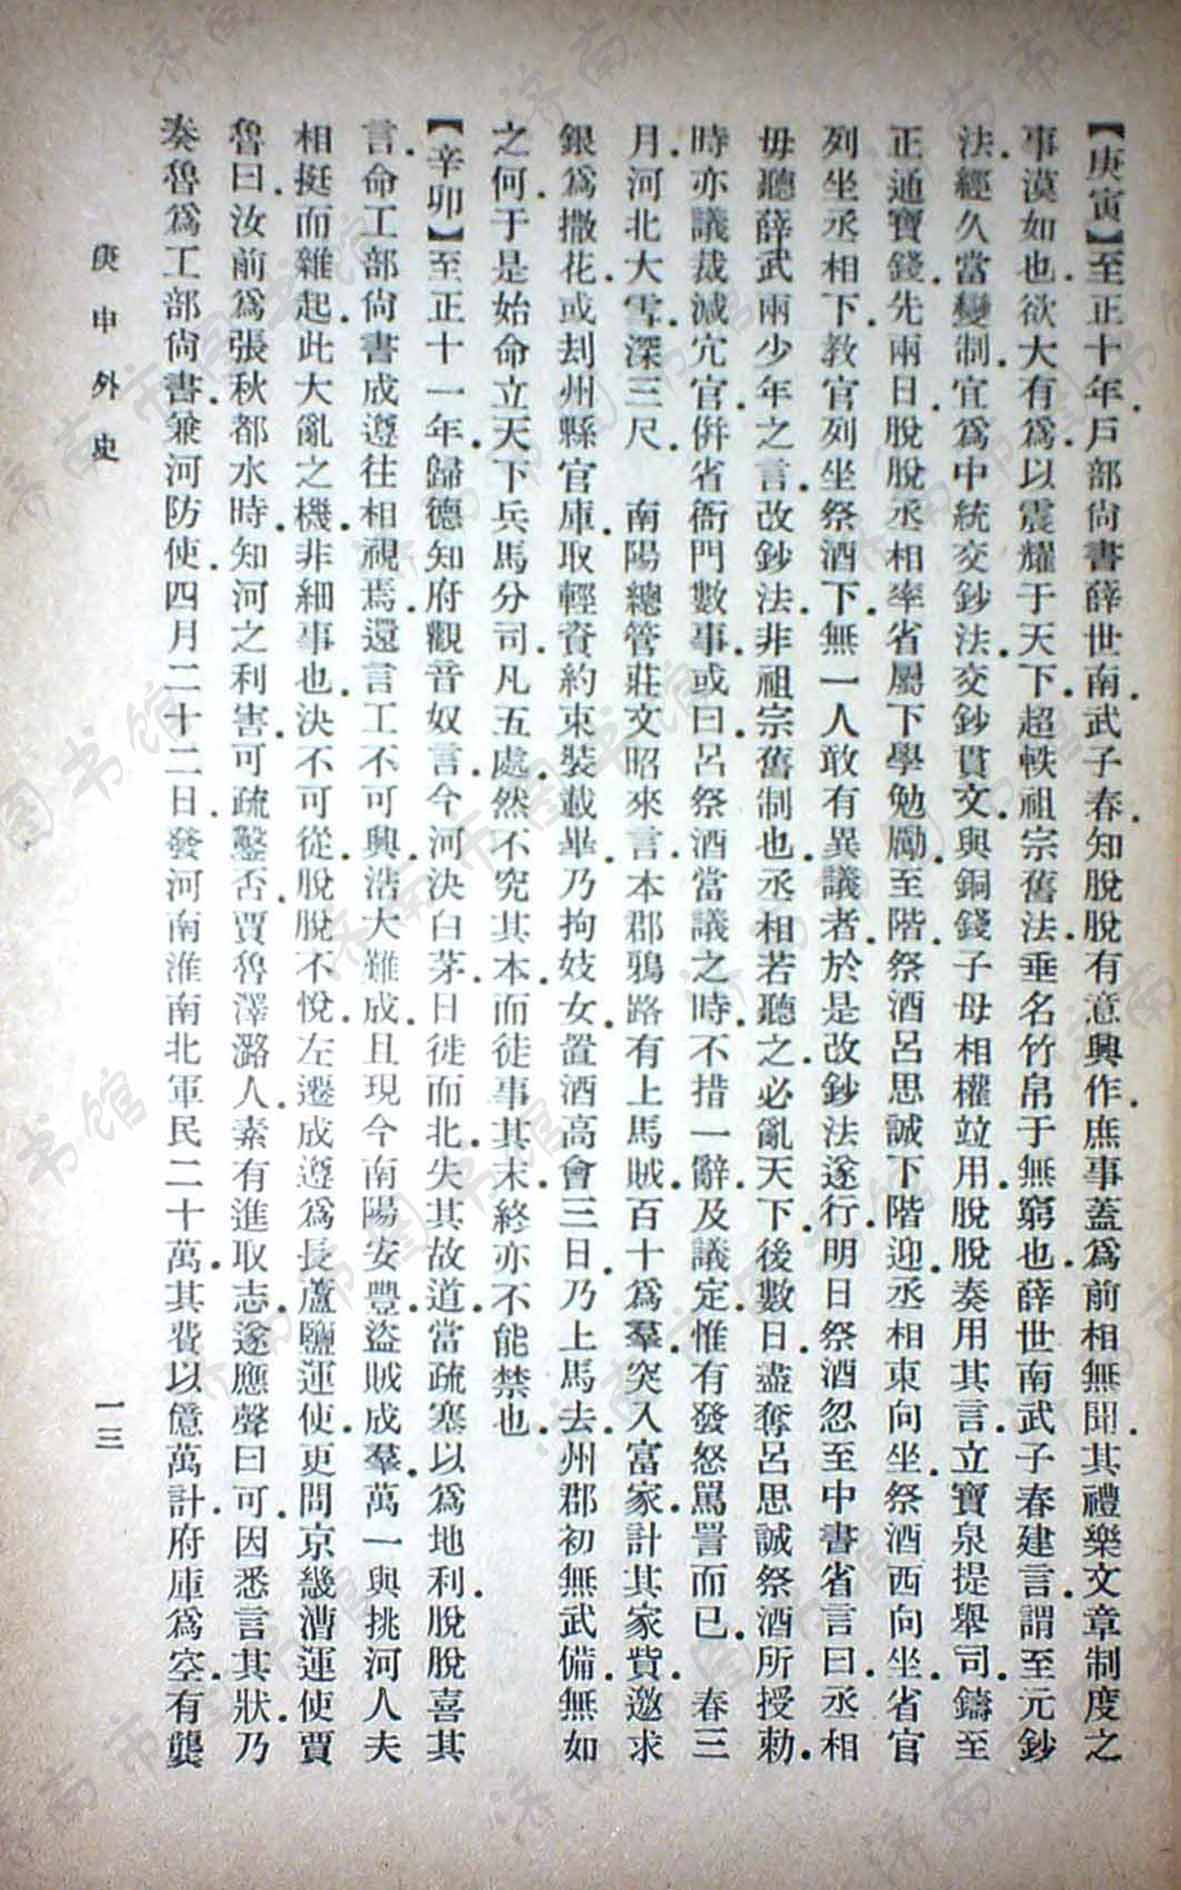 【庚寅】至正十年．戶部尙書薛世南．武子春．知脫脫有意興作．庶事蓋爲前相無聞．其禮樂文章制度之
事漠如也．欲大有爲．以震耀于天下．超軼祖宗舊法．垂名竹帛于無窮也．薛世南武子春建言．謂至元鈔
法．經久當變制．宜爲中統交鈔法．交鈔貫文．與銅錢子母相權竝用．脫脫奏用其言．立寶泉提舉司．鑄至
正通寶錢．先兩日．脫脫丞相率省屬下學勉勵．至階．祭酒呂思誠下階迎．丞相東向坐．祭酒西向坐．省官
列坐丞相下．教官列坐祭酒下．無一人敢有異議者．於是改鈔法遂行．明日祭酒忽至中書省言曰．丞相
毋聽薛武兩少年之言．改鈔法．非祖宗舊制也．丞相若聽之．必亂天下．後數日．盡奪呂思誠祭酒所授勅．
時亦議裁減冗官．倂省衙門數事．或曰．呂祭酒當議之時．不措一辭．及議定．惟有發怒罵詈而已．　春三
月．河北大雪．深三尺．　南陽總管莊文昭來言．本郡鴉路有上馬賊．百十爲羣．突入富家．計其家貲．邀求
銀爲撒花．或刦州縣官庫．取輕資約束裝載畢．乃拘妓女．置酒高會三日．乃上馬去．州郡初無武備．無如
之何．于是始命立天下兵馬分司．凡五處．然不究其本．而徒事其末．終亦不能禁也．
【辛卯】至正十一年．歸德知府觀音奴言．今河決白茅．日徙而北．失其故道．當疏塞以爲地利．脫脫喜其
言．命工部尙書成遵往相視焉．還言工不可興．浩大難成．且現今南陽安豐．盜賊成羣．萬一與挑河人夫
相挺而雜起．此大亂之機．非細事也．決不可從．脫脫不悅．左遷成遵爲長蘆鹽運使．更問京畿漕運使賈
魯曰．汝前爲張秋都水時．知河之利害．可疏鑿否．賈魯澤潞人．素有進取志．遂應聲曰可．因悉言其狀．乃
奏魯爲工部尙書．兼河防使．四月二十二日．發河南淮南北軍民二十萬．其費以億萬計．府庫爲空．有龔
庚申外史
一三
济南市图书馆